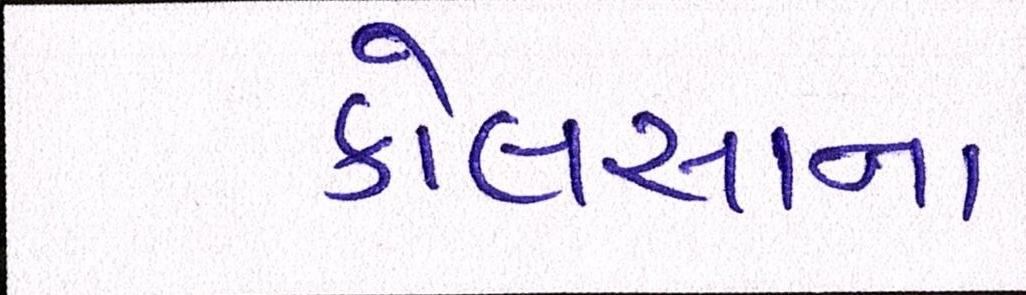 કોલસાના